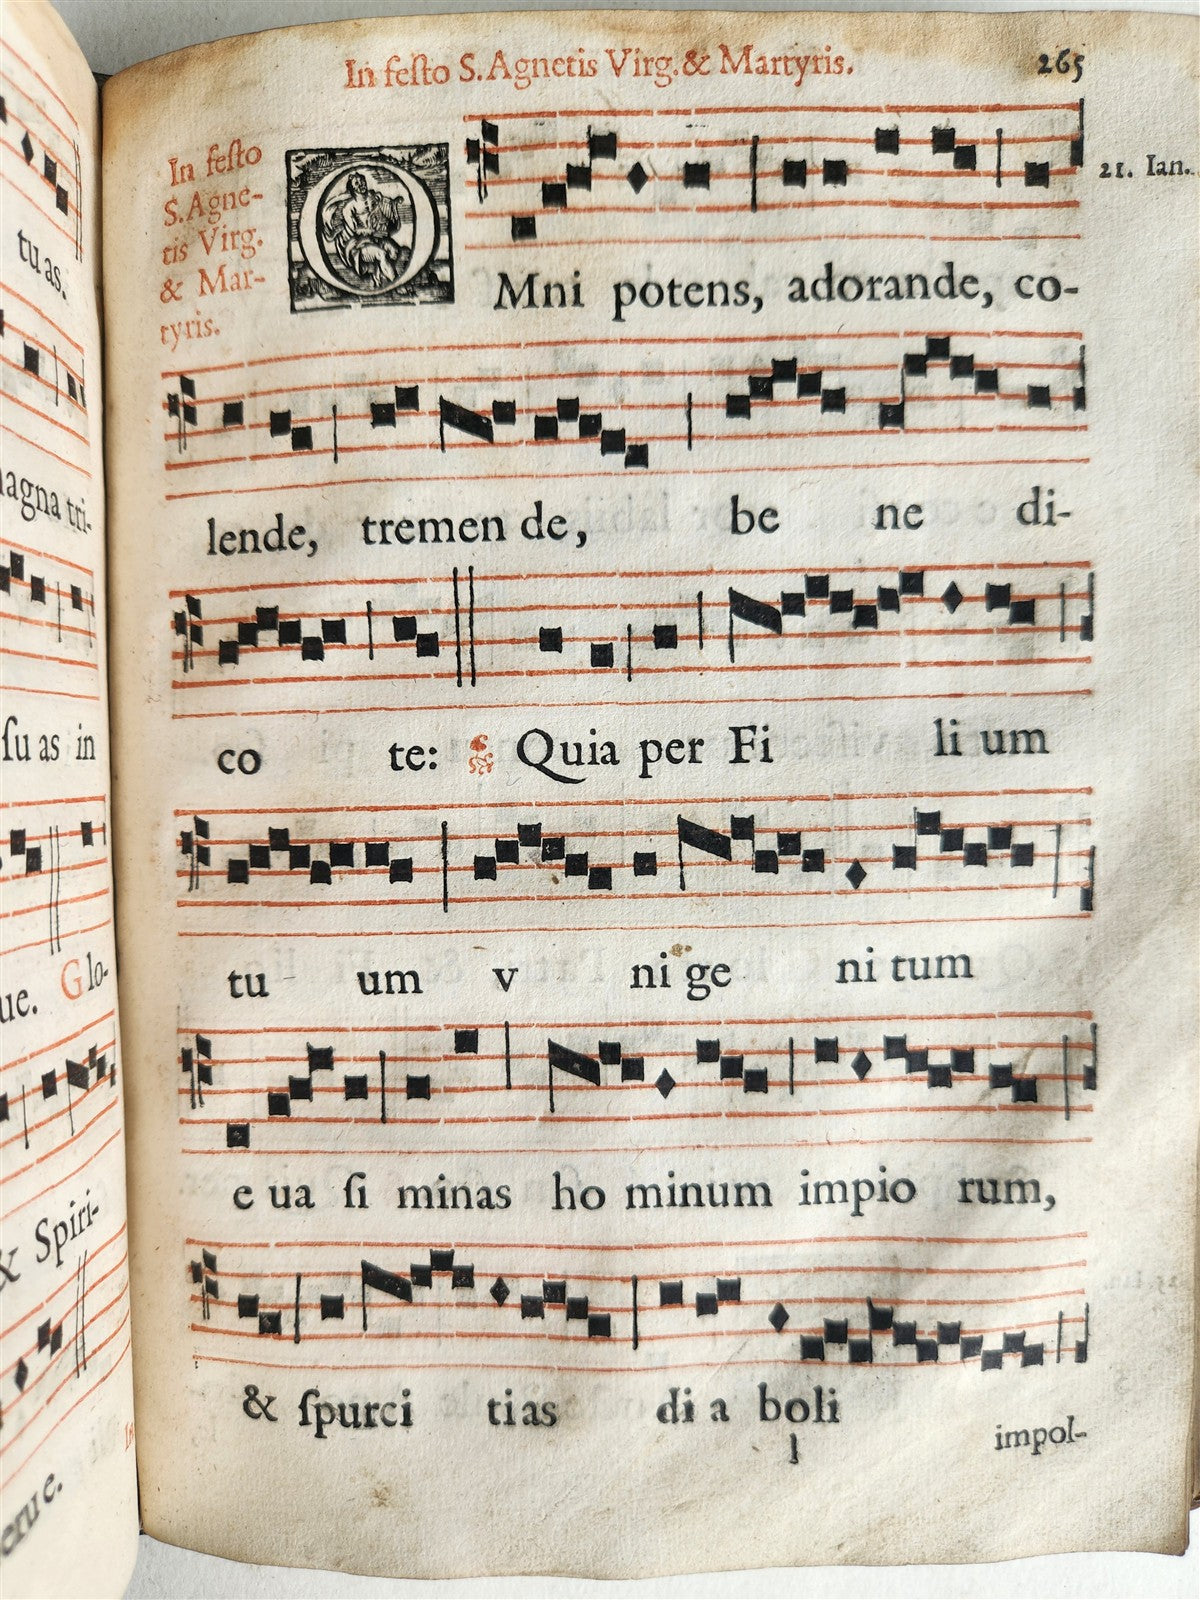 tuas.
magna tri-
ſu as in
ue. Glo-
& Spiri-
In feſto S. Agnetis Virg. & Martyris.
265
In feſto
S. Agne-
tis Virg.
& Mar-
tyris.
21. Ian.
OMni potens, adorande, co-
lende, tremen de, be ne di-
co te: Quia per Fi li um
tu - um v ni ge ni tum
e ua ſi minas ho minum impio rum,
& ſpurci ti as di a boli
l
impol-